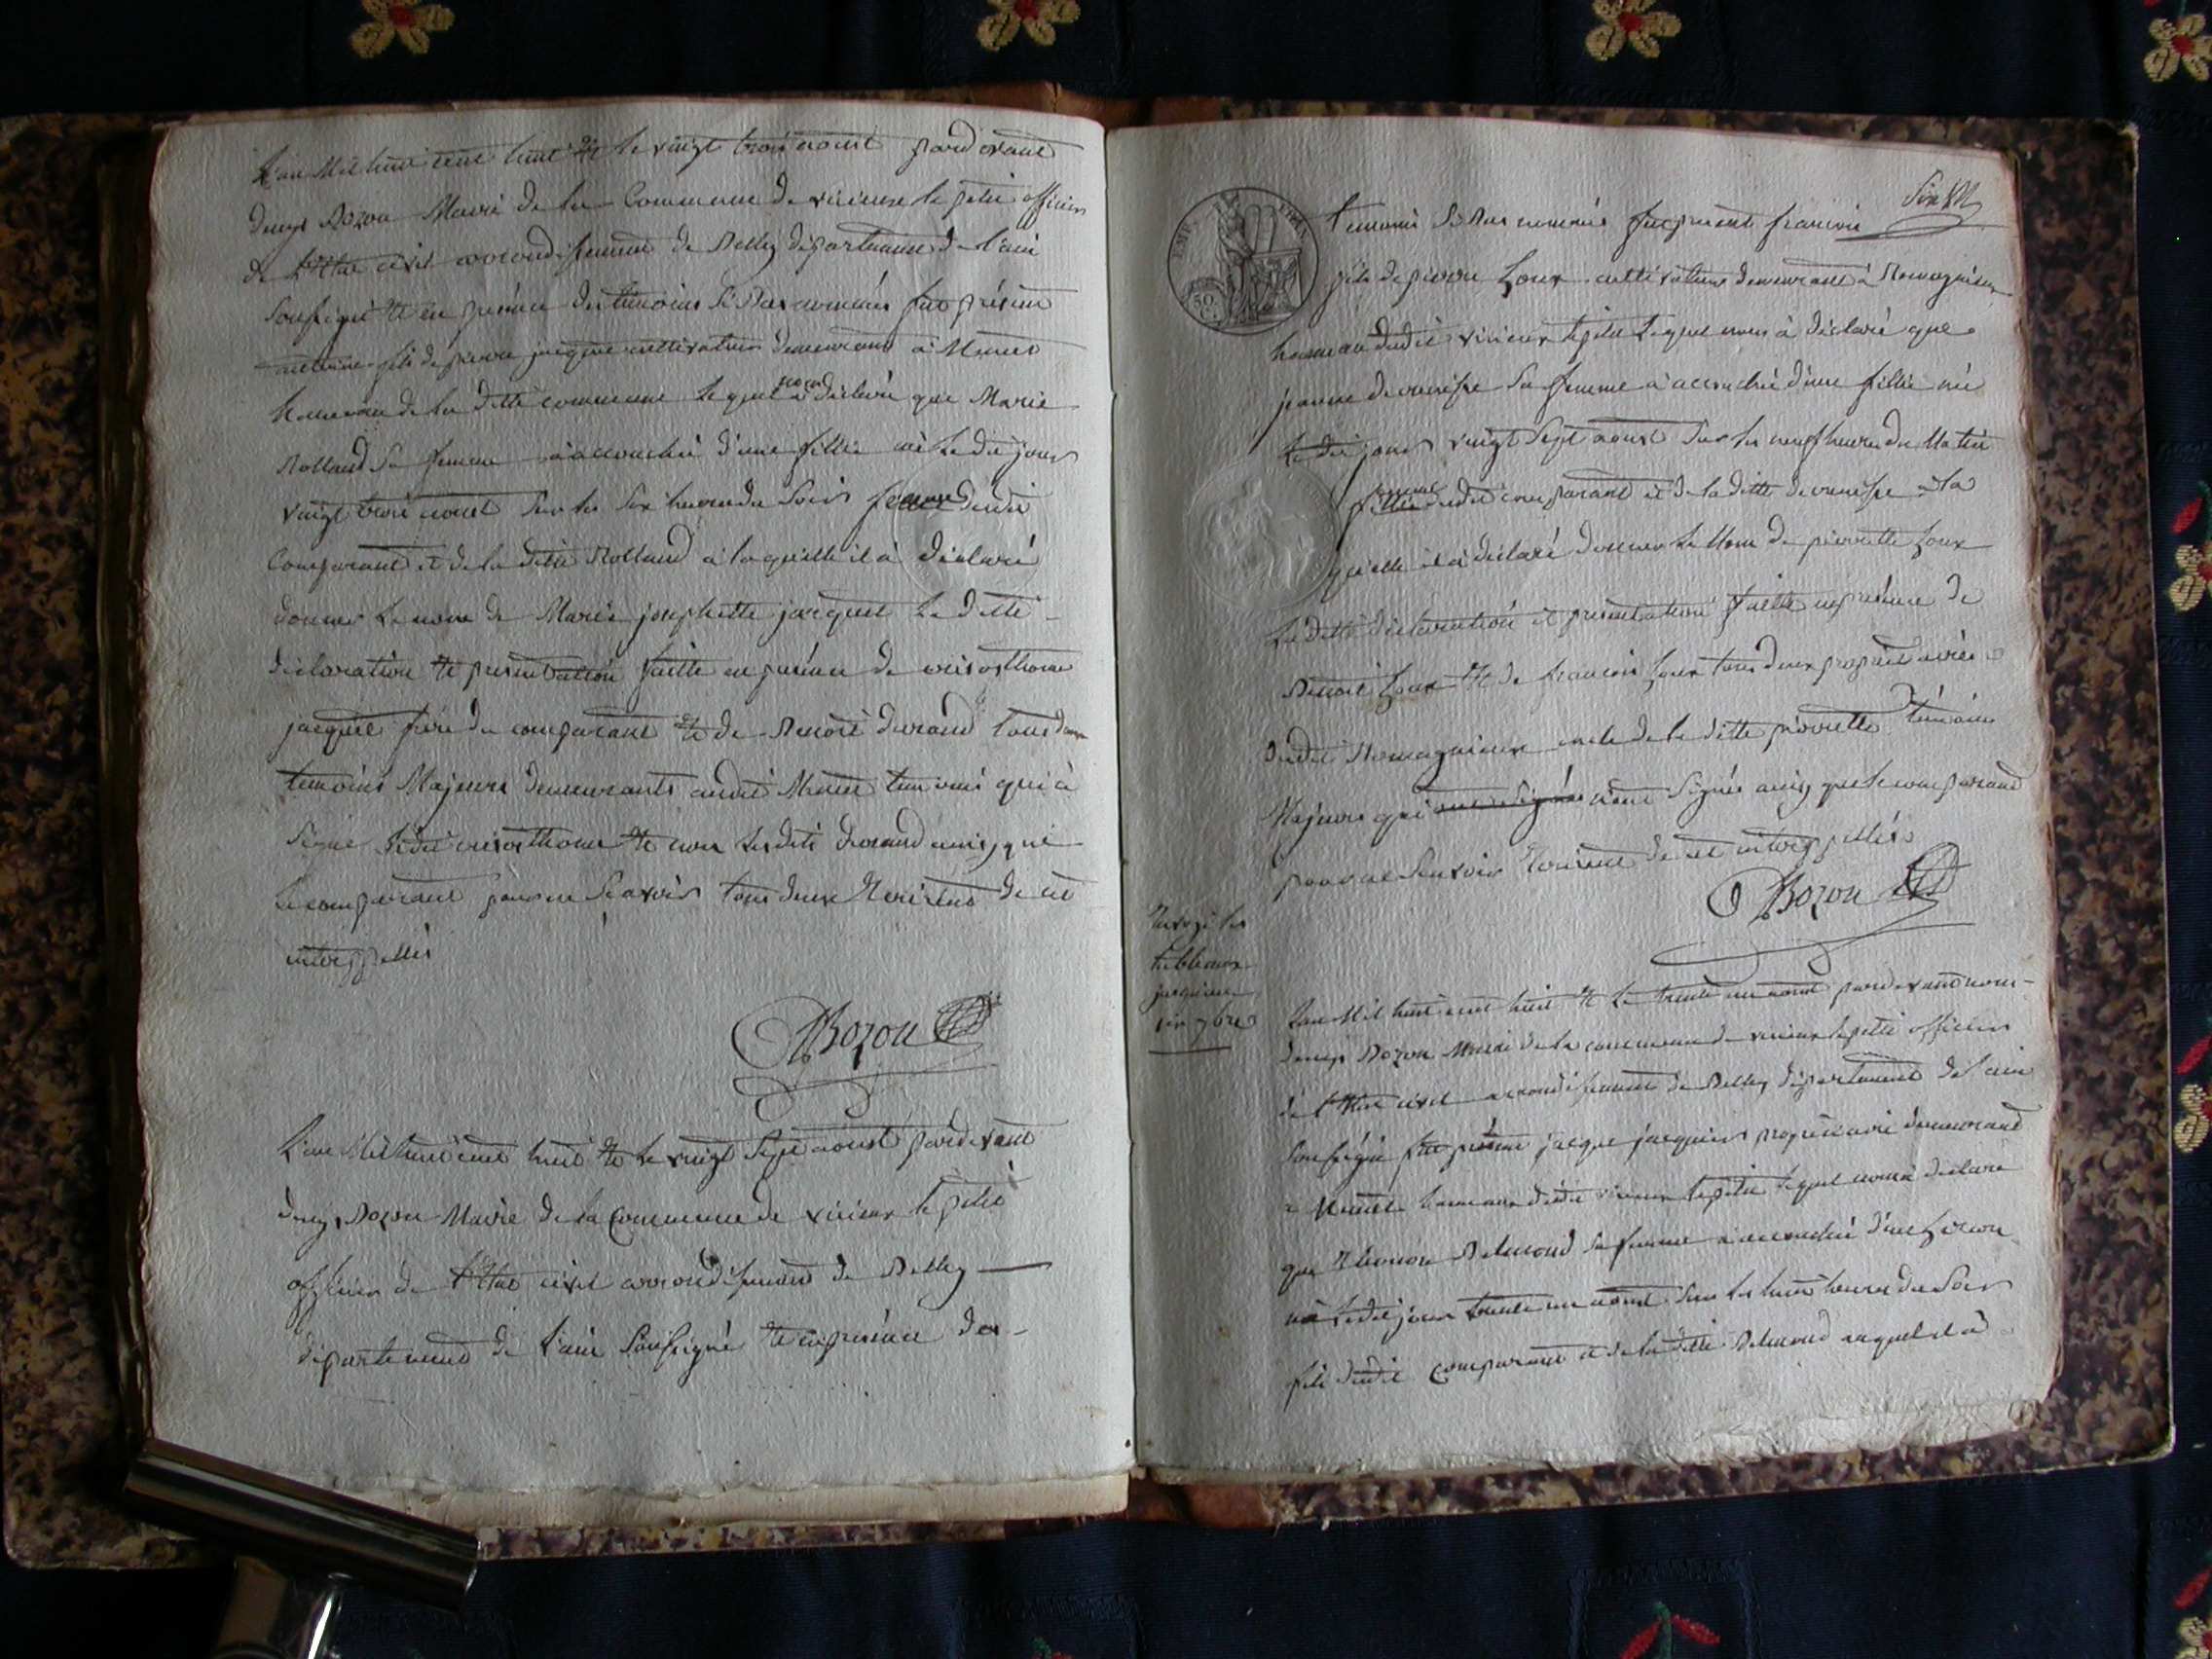 L'an Mil huit cent huit et le vingt trois aoust pardevant
denys Bozon Maire de la Commune de virieux le petit officier
de l'Etat civil arrondissement de Belley departement de l'ain
Soussigné et en presence des temoins Si Bas nommés fut présent
antoine fils de pierre jacquet cultivateur demeurant à
hameau de la ditte commune lequel nous a déclaré que Marie
Rolland Sa femme à accouchée d'une fillie née Ledit jour
vingt trois aoust Sur les Six heures du Soir dudit
Comparant et de la ditte Rolland à laquelle il à déclaré
donner Le nom de Marie josephette jacquet La ditte
déclaration et presentation faitte en presence de crisosthome
jacquet frere du comparant et de Benoit durand tous deux
temoins Majeurs demeurants audit temoins qui à
Signé Ledit crisosthome et non Ledit durand ainsy que
Le comparant pour ne Scavoir tous deux Ecrire de ce
interppellés
DBozon
L'an Mil huit cent huit et le vingt Sept aoust pardevant
denys Bozon Maire de la Commune de virieux le petit
officier de l'Etat civil arrondissement de Belley
departement de l'ain Soussigné et en presence des
temoins Si Bas nommés fut present francois
fils de pierre cultivateur demeurant à Romagnieu
hameau dudit virieux le petit Lequel nous à déclaré que
jeanne Sa femme à accouchée d'une fillie née
Le dit jour vingt Sept aoust Sur les neuf heures du Matin
fillie dudit comparant et de la ditte à la
quelle il à déclaré donner Le Nom de pierrette
La ditte déclaration et presentation faitte en presence de
Benoit et de francois tous deux proprietaires
dudit Romagnieux oncle de la ditte pierrette temoins
Majeurs qui n'ont Signés ainsy que le comparant
pour ne Scavoir Ecrire de ce interppellés
DBozon
EMP. FRAN.
50 C.
les
tableaux
jusqu'au
1er 7bre
L'an Mil huit cent huit et le trente un aoust pardevant nous
denys Bozon Maire de la commune de virieux le petit officier
de l'Etat civil arrondissement de Belley département de l'ain
Soussigné fut présent jacque jacquier proprietaire demeurant
à hameau dudit virieux le petit lequel nous à déclaré
que Sa femme à accouchée d'un garcon
né Ledit jour trente un aoust Sur les huit heures du Soir
fils dudit Comparant et de la ditte auquel il à